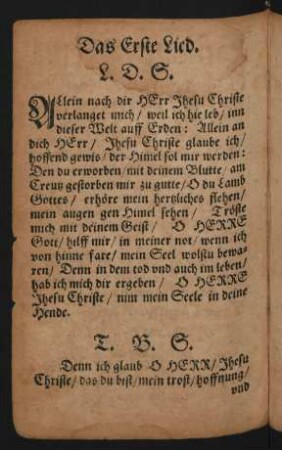 Das Erste Lied.
L. D. S.
ALlein nach dir HErr Jhesu Christe
verlanget mich/ weil ich hie leb/ inn
dieser Welt auff Erden: Allein an
dich HErr/ Jhesu Christe glaube ich/
hoffend gewis/ der Himel sol mir werden:
Den du erworben/ mit deinem Blutte/ am
Creutz gestorben mir zu gutte/ O du Lamb
Gottes/ erhöre mein hertzliches flehen/
mein augen gen Himel sehen/ Tröste
mich mit deinem Geist/ O HERRE
Gott/ hilff mir/ in meiner not/ wenn ich
von hinne fare/ mein Seel wolstu bewa-
ren/ Denn in dem tod vnd auch im leben/
hab ich mich dir ergeben/ O HERRE
Jhesu Christe/ nim mein Seele in deine
Hende.
T. B. S.
Denn ich glaub O HERR/ Jhesu
Christe/ das du bist/ mein trost/ hoffnung/
vnd